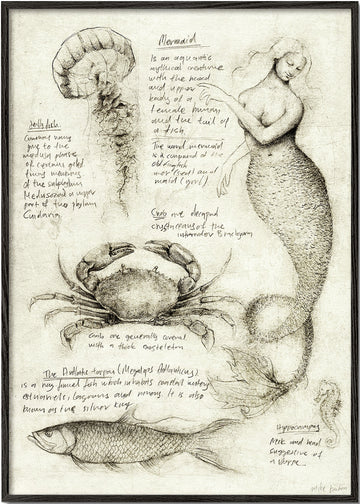 Mermaid
Is an aquatic
mythical creature
with the head
and upper
body of a
female human
and the tail of
a fish.
The word mermaid
is a compound of the
old english
mere (sea) and
maid (girl)
Jellyfish
Common name
give to the
medusa phase
of certain gelat
members
of the subphylum
Medusozoa a
part of the phylum
Cnidaria
Crabs are decapod
crustaceans of the
infraorder Brachyura
Crabs are generally covered
with a thick exoskeleton
The Atlantic tarpon (Megalops Atlanticus)
is a ray finned fish which inhabits coastal waters
estuaries, lagoons and rivers. It is also
known as the silver king
Hyppocampus
Neck and head
suggestive of
a horse